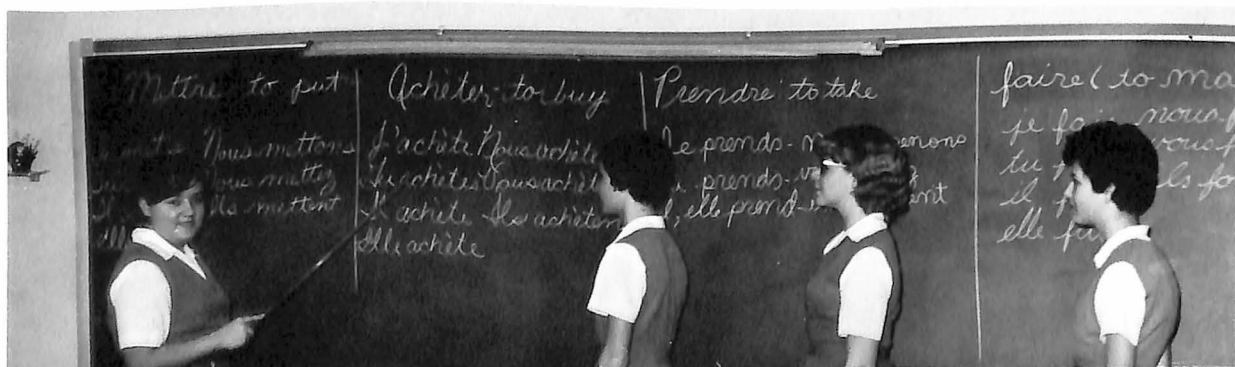 Mettre to put
Nous mettons
Vous mettez
Ils mettent
Achèter-to buy
J'achète Nous achète
Tu achètes Vous achèt
Il achète Ils achèten
Elle achète
Prendre to take
Je prends- enons
prends-
elle prend- ent
faire (to ma
je fais nous f
tu vous f
il ils fo
elle fai